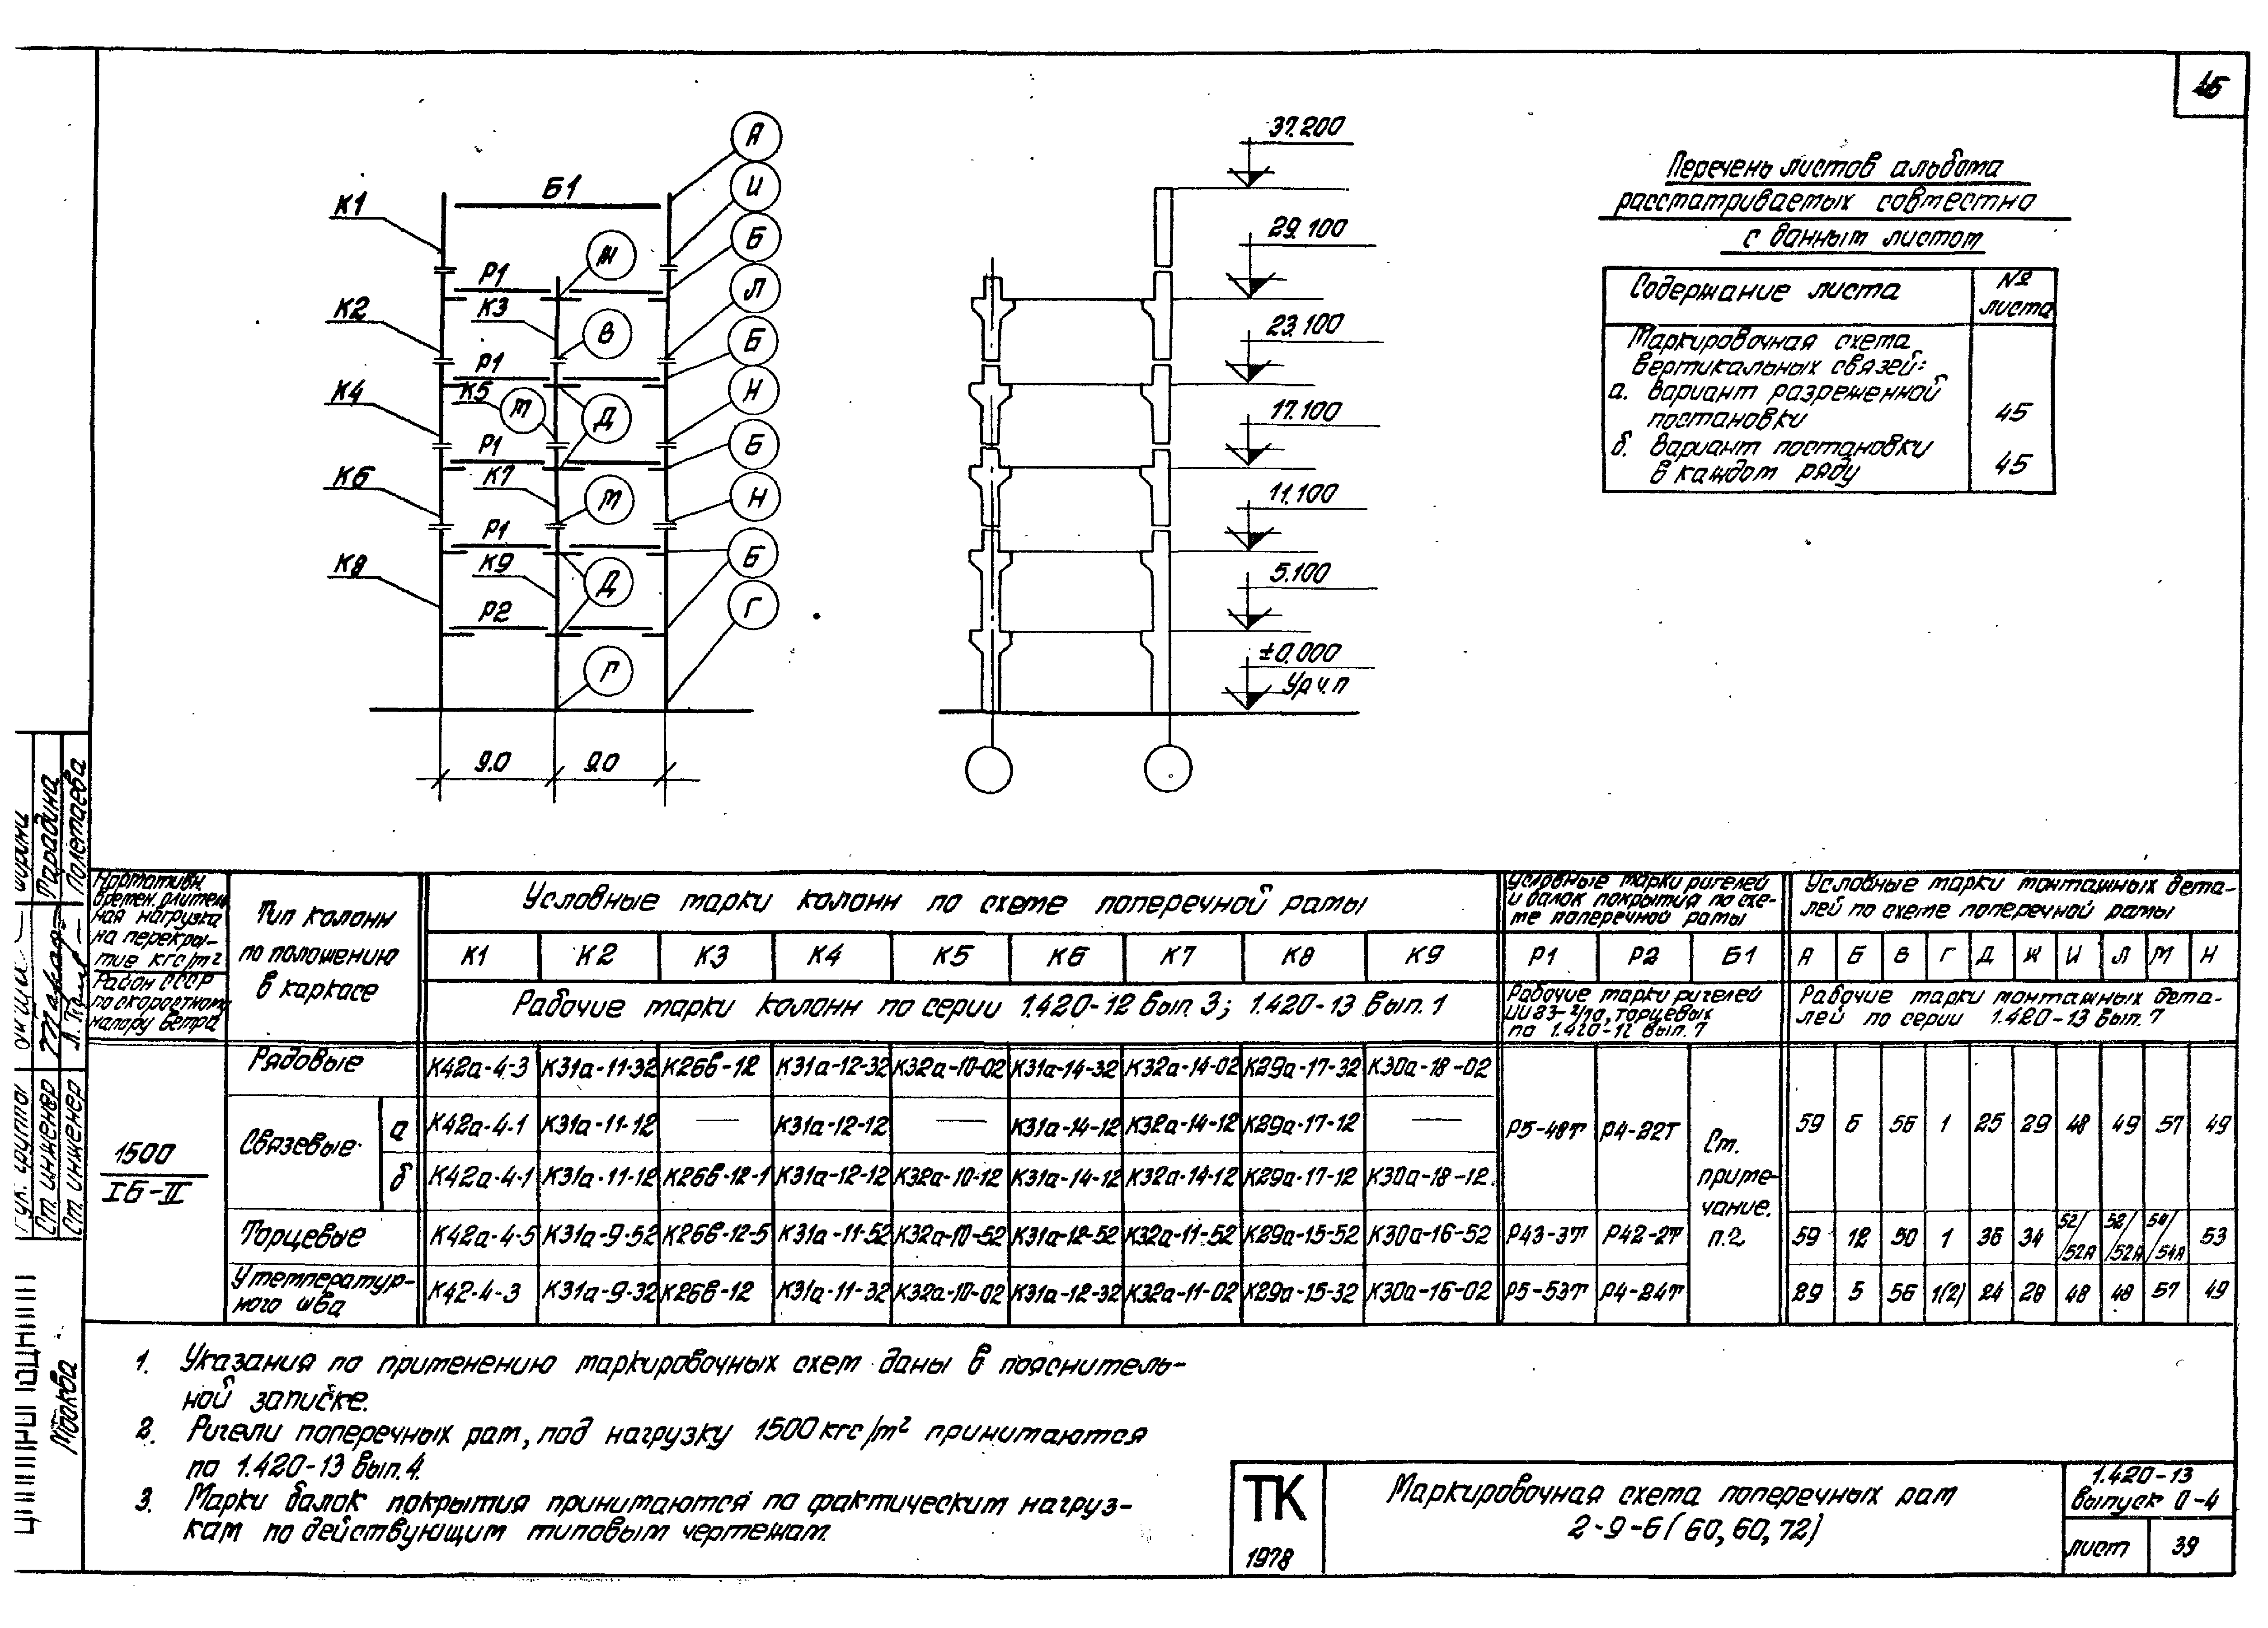 45
А
И
Б
Л
Б
Н
Б
Н
Б
Г
Б1
К1
К2
К4
К6
К8
Р1
К3
Р1
К5
Р1
К7
Р1
К9
Р2
Ж
В
М
Д
М
Д
Г
9.0
9.0
37.200
29.100
23.100
17.100
11.100
5.100
±0.000
Ур.ч.п
Перечень листов альбома
рассматриваемых совместно
с данным листом
Содержание листа
№
листа
Маркировочная схема
вертикальных связей:
а. вариант разреженной
постановки
45
б. вариант постановки
в каждом ряду
45
Нормативн.
времен. длитель-
ная нагрузка
на перекры-
тие кгс/м²
Район СССР
по скоростному
напору ветра
Тип колонн
по положению
в каркасе
Условные марки колонн по схеме поперечной рамы
Условные марки ригелей
и балок покрытия по схе-
ме поперечной рамы
Условные марки монтажных дета-
лей по схеме поперечной рамы
К1 К2 К3 К4 К5 К6 К7 К8 К9 Р1 Р2 Б1 А Б В Г Д Ж И Л М Н
Рабочие марки колонн по серии 1.420-12 вып. 3; 1.420-13 вып. 1
Рабочие марки ригелей
ИИ23-2/70, торцевых
по 1.420-12 вып. 7
Рабочие марки монтажных дета-
лей по серии 1.420-13 вып. 7
1500
IБ-II
Рядовые К42а-4-3 К31а-11-32 К26в-12 К31а-12-32 К32а-10-02 К31а-14-32 К32а-14-02 К29а-17-32 К30а-18-02
Связевые а К42а-4-1 К31а-11-12 — К31а-12-12 — К31а-14-12 К32а-14-12 К29а-17-12 — Р5-48т Р4-22т 59 Б 56 1 25 29 48 49 57 49
б К42а-4-1 К31а-11-12 К26в-12-1 К31а-12-12 К32а-10-12 К31а-14-12 К32а-14-12 К29а-17-12 К30а-18-12
См.
приме-
чание.
п.2
Торцевые К42а-4-5 К31а-9-52 К26в-12-5 К31а-11-52 К32а-10-52 К31а-12-52 К32а-11-52 К29а-15-52 К30а-16-52 Р43-3т Р42-2т 59 12 50 1 36 34 52/52А 52/52А 54/54А 53
У температур-
ного шва К42-4-3 К31а-9-32 К26в-12 К31а-11-32 К32а-10-02 К31а-12-32 К32а-11-02 К29а-15-32 К30а-16-02 Р5-53т Р4-24т 29 5 56 1(2) 24 28 48 48 57 49
1. Указания по применению маркировочных схем даны в пояснитель-
ной записке.
2. Ригели поперечных рам, под нагрузку 1500 кгс/м² принимаются
по 1.420-13 вып. 4.
3. Марки балок покрытия принимаются по фактическим нагруз-
кам по действующим типовым чертежам.
ТК
1978
Маркировочная схема поперечных рам
2-9-6(60, 60, 72)
1.420-13
выпуск 0-4
лист 39
Рук. группы
Ст. инженер Тарадина
Ст. инженер Полетаева
Москва